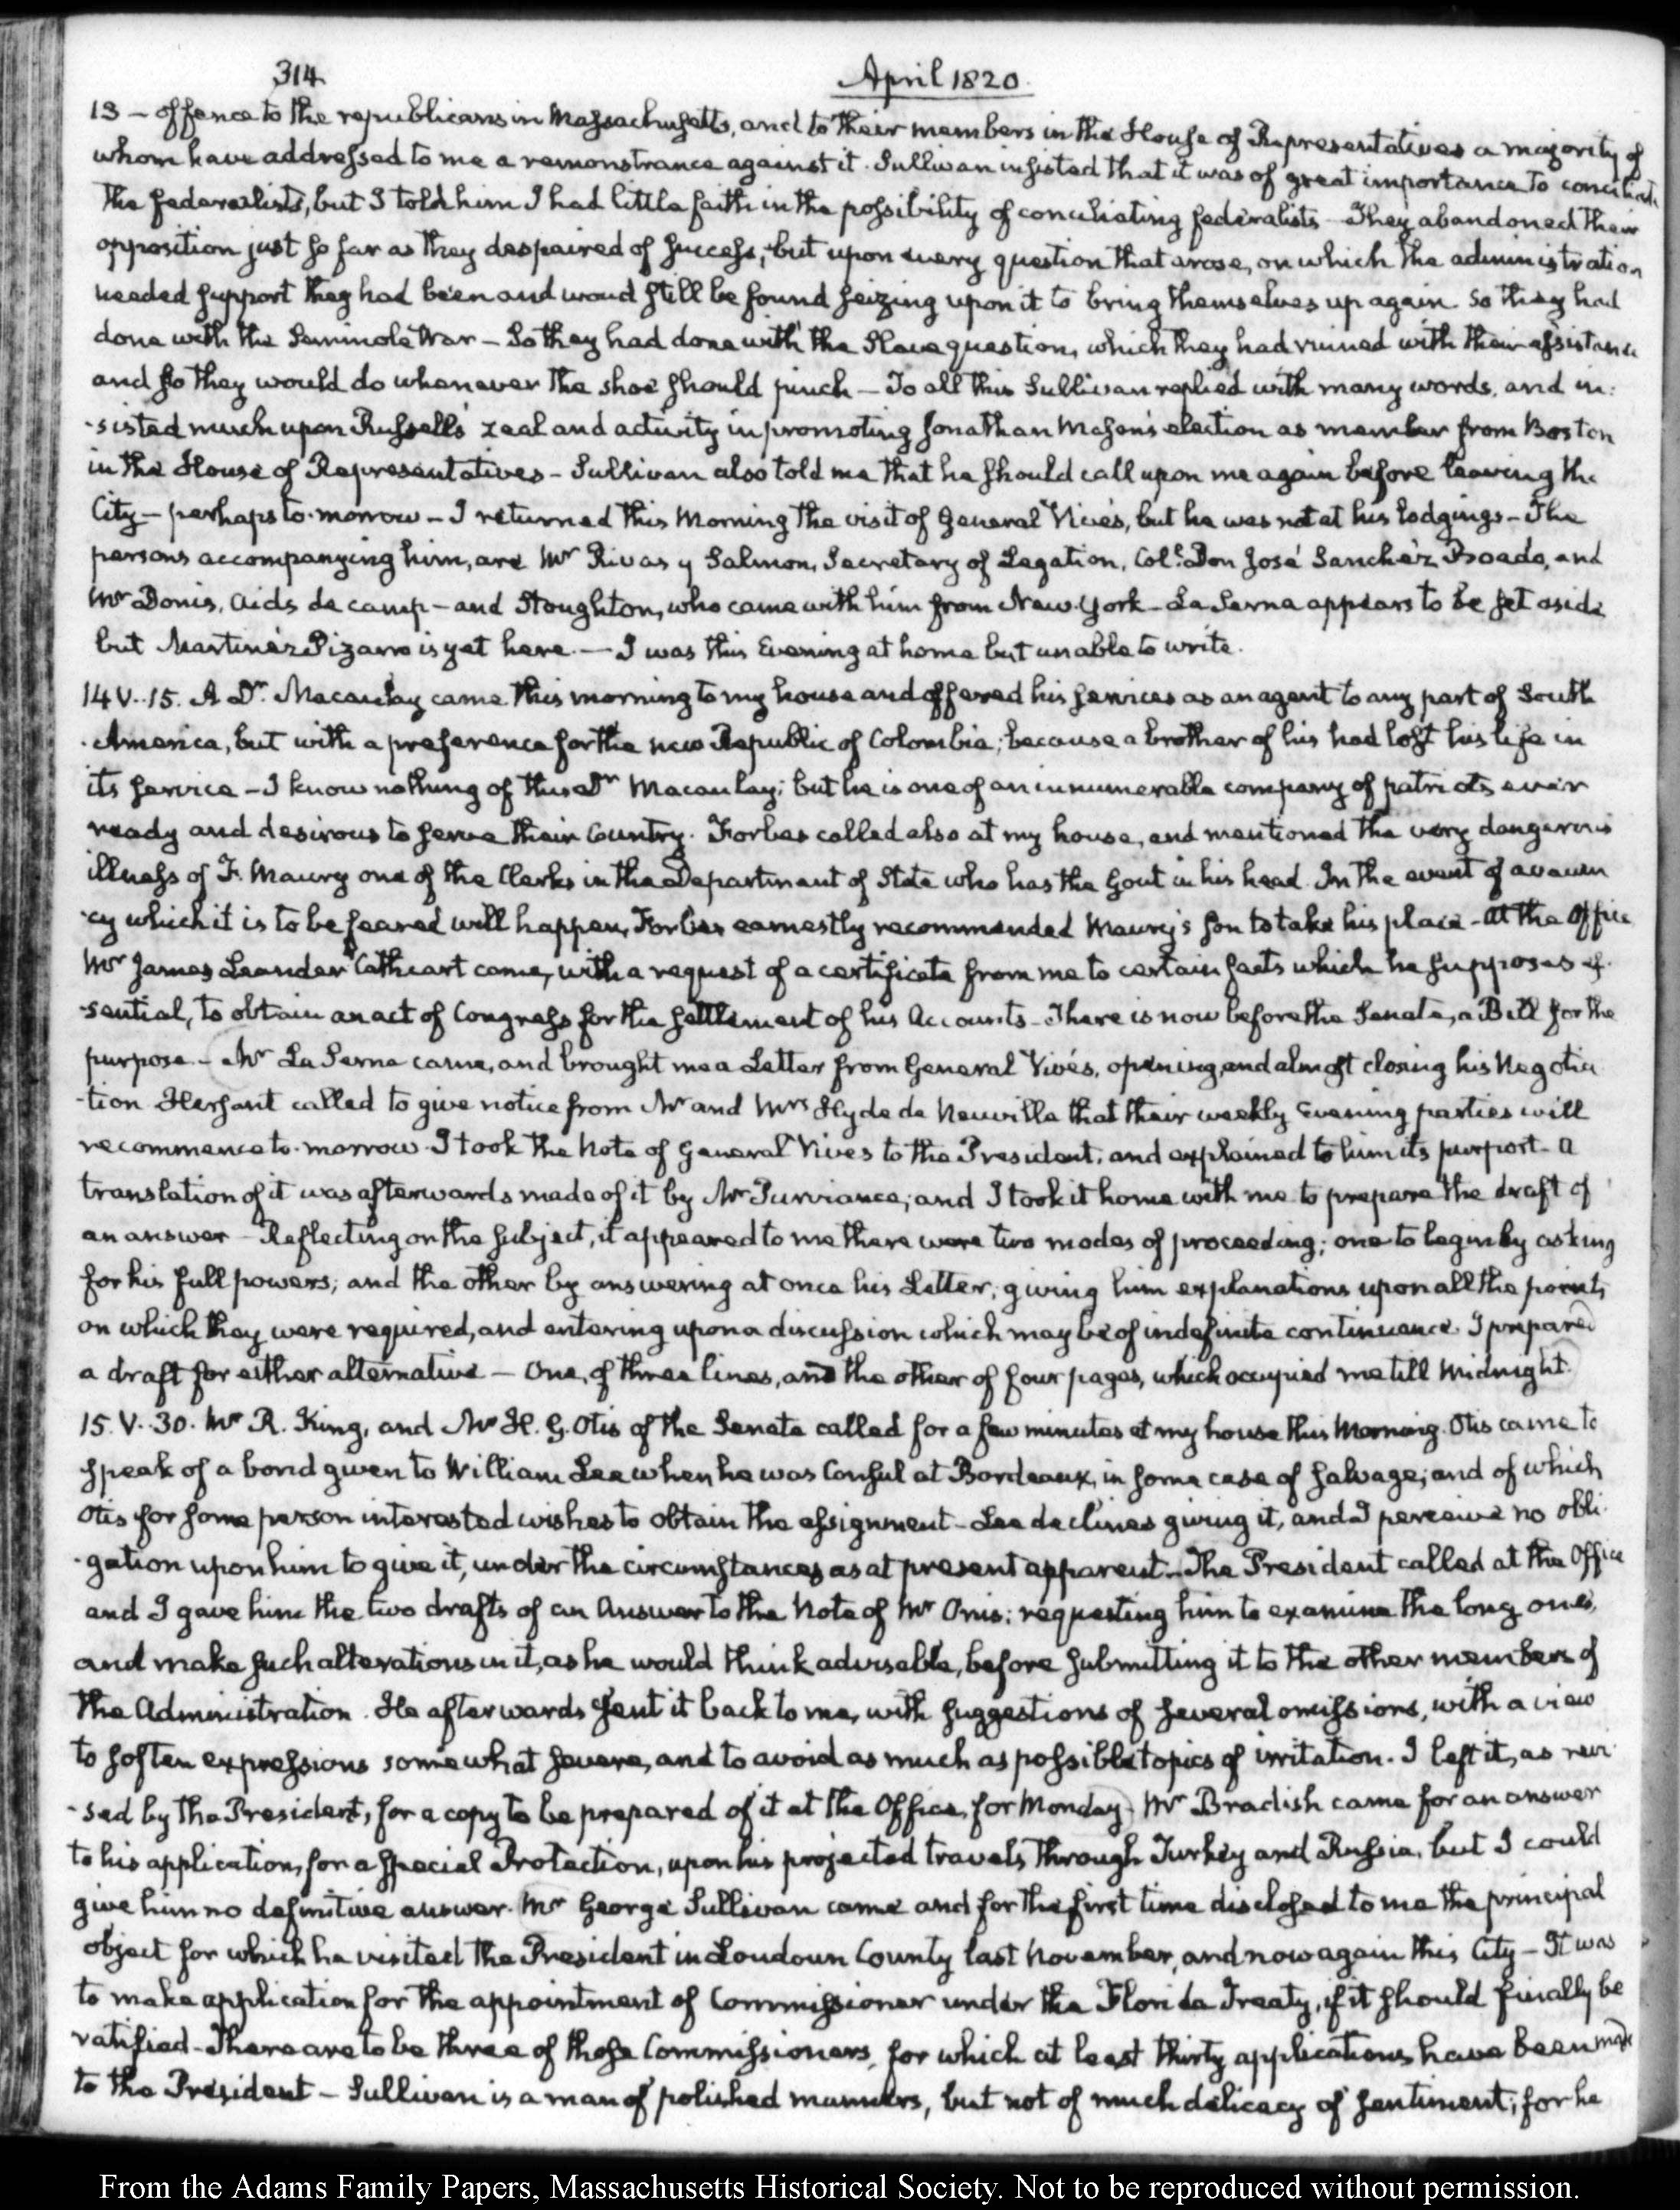 314
April 1820.
13 — offence to the republicans in Massachusetts, and to their members in the House of Representatives a majority of
whom have addressed to me a remonstrance against it. Sullivan insisted that it was of great importance to conciliate
the federalists, but I told him I had little faith in the possibility of conciliating federalists — They abandoned their
opposition just so far as they despaired of success; but upon every question that arose, on which the administration
needed support they had been and woud still be found seizing upon it to bring themselves up again. So they had
done with the Seminole War — So they had done with the Slave question, which they had ruined with their assistance
and so they would do whenever the shoe should pinch — To all this Sullivan replied with many words, and in:
-sisted much upon Russell's zeal and activity in promoting Jonathan Mason's election as member from Boston
in the House of Representatives — Sullivan also told me that he should call upon me again before leaving the
City — perhaps to-morrow — I returned this Morning the visit of General Vivés, but he was not at his lodgings — The
persons accompanying him, are Mr Rivas y Salmon, Secretary of Legation, Col: Don José Sanchéz Boado, and
Mr Donis, Aids de camp — and Stoughton, who came with him from New-York — La Serna appears to be set aside
but Martinéz Pizarro is yet here. — I was this Evening at home but unable to write.
14 V..15. A Dr. Macaulay came this morning to my house and offered his services as an agent to any part of South
America, but with a preference for the new Republic of Colombia; because a brother of his had lost his life in
its service — I know nothing of this Dr Macaulay; but he is one of an innumerable company of patriots ever
ready and desirous to serve their Country. Forbes called also at my house, and mentioned the very dangerous
illness of F. Maury one of the Clerks in the Department of State who has the Gout in his head. In the event of a vacan
-cy which it is to be feared will happen, Forbes earnestly recommended Maury's son to take his place — At the Office
Mr James Leander Cathcart came, with a request of a certificate from me to certain facts which he supposes es-
-sential, to obtain an act of Congress for the settlement of his Accounts — There is now before the Senate, a Bill for the
purpose — Mr La Serna came, and brought me a Letter from General Vivés, opening, and almost closing his Negotia
-tion. Hersant called to give notice from Mr and Mrs Hyde de Neuville that their weekly Evening parties will
recommence to-morrow. I took the Note of General Vives to the President, and explained to him its purport — A
translation of it was afterwards made of it by Mr Purviance; and I took it home with me to prepare the draft of
an answer — Reflecting on the subject, it appeared to me there were two modes of proceeding; one to begin by asking
for his full powers; and the other by answering at once his Letter; giving him explanations upon all the points
on which they were required, and entering upon a discussion which may be of indefinite continuance. I prepared
a draft for either alternative — One, of three lines, and the other of four pages, which occupied me till Midnight.
15. V. 30. Mr R. King, and Mr H. G. Otis of the Senate called for a few minutes at my house this Morning. Otis came to
speak of a bond given to William Lee when he was Consul at Bordeaux, in some case of salvage; and of which
Otis for some person interested wishes to obtain the assignment — Lee declines giving it, and I perceive no obli-
-gation upon him to give it, under the circumstances as at present apparent — The President called at the Office
and I gave him the two drafts of an Answer to the Note of Mr Onis; requesting him to examine the long one,
and make such alterations in it, as he would think adviseable, before submitting it to the other members of
the Administration. He afterwards sent it back to me, with suggestions of several omissions, with a view
to soften expressions somewhat severe, and to avoid as much as possible topics of irritation. I left it, as revi-
-sed by the President, for a copy to be prepared of it at the Office, for Monday. Mr Bradish came for an answer
to his application, for a special Protection, upon his projected travels through Turkey and Russia, but I could
give him no definitive answer. Mr George Sullivan came and for the first time disclosed to me the principal
object for which he visited the President in Loudoun County last November, and now again this City — It was
to make application for the appointment of Commissioner under the Florida Treaty, if it should finally be
ratified — There are to be three of those Commissioners, for which at least thirty applications have been made
to the President — Sullivan is a man of polished manners, but not of much delicacy of sentiment; for he
From the Adams Family Papers, Massachusetts Historical Society. Not to be reproduced without permission.